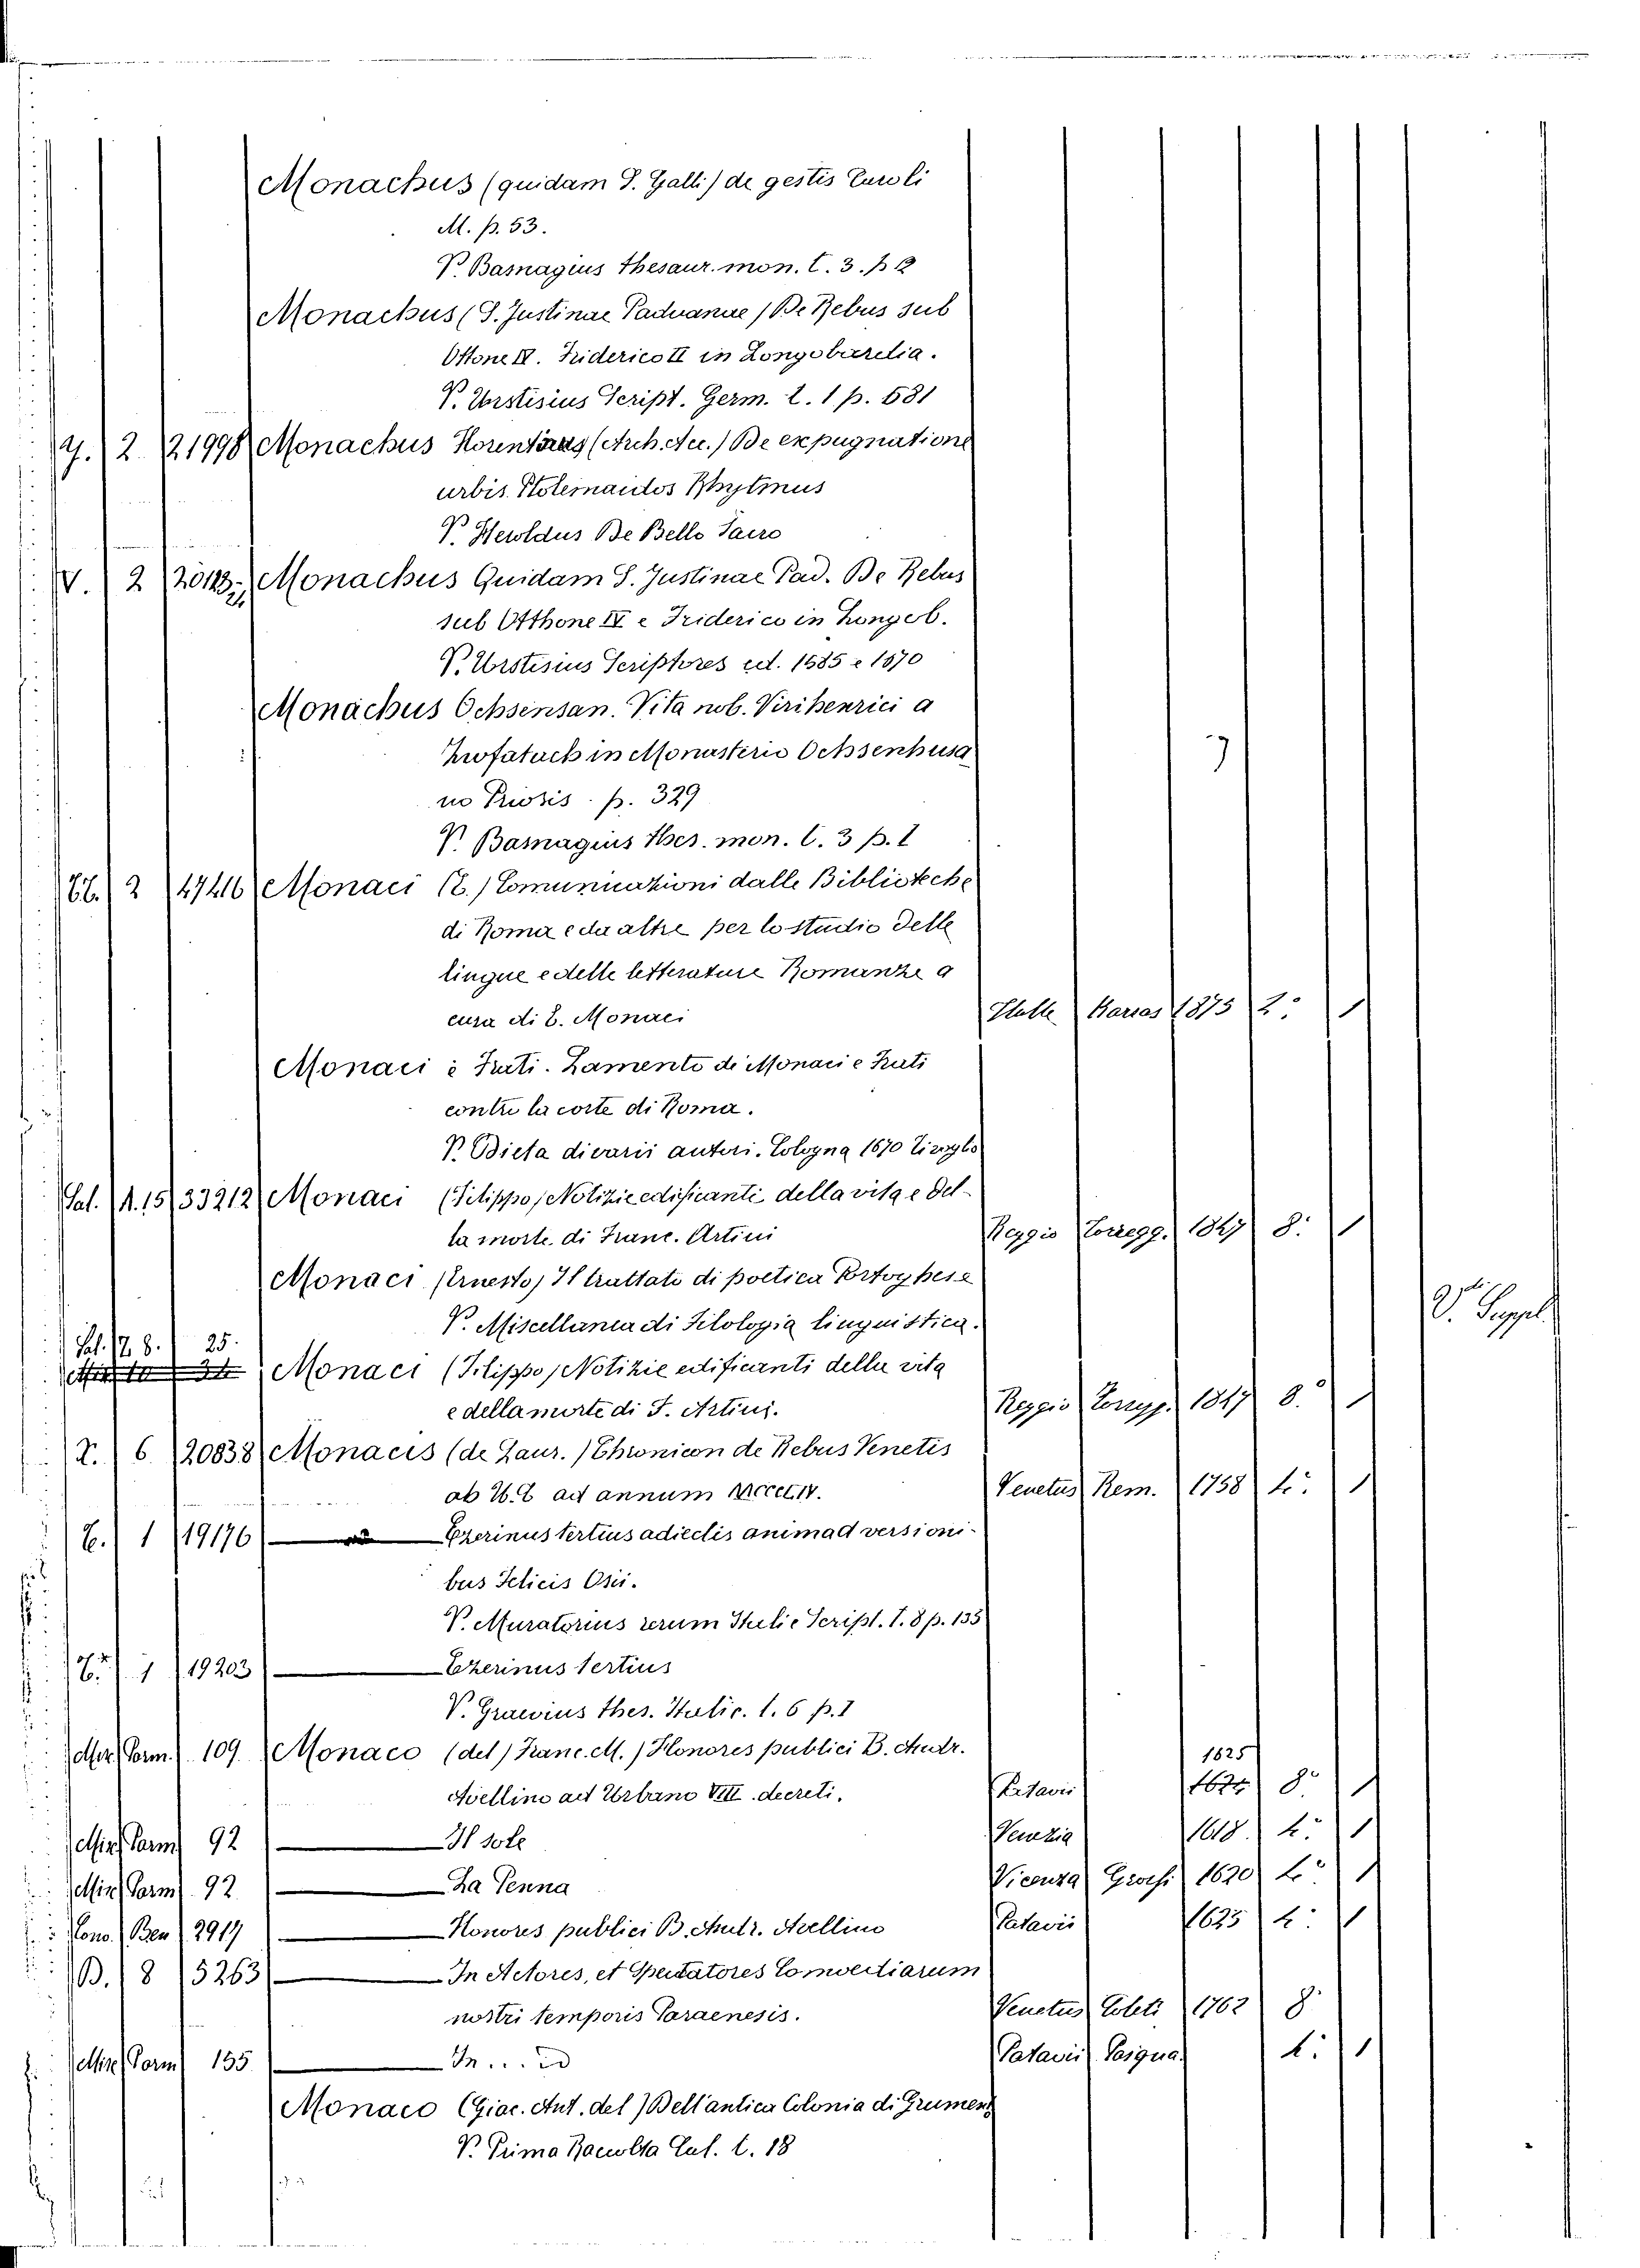 Monachus (quidam S. Galli) de gestis Caroli
M. p. 53.
V. Basnagius thesaur. mon. t. 3. p 2
Monachus (S. Justinae Paduanae) De Rebus sub
Ottone IV. Friderico II in Longobardia.
V. Urstisius Script. Germ. t. 1 p. 581
Y. 2 21998 Monachus Florentinus (Arch. Acc.) De expugnatione
urbis Ptolemaidos Rhytmus
V. Heroldus De Bello Sacro
V. 2 Monachus Quidam S. Justinae Pad. De Rebus
sub Otthone IV e Friderico in Longob.
V. Urstisius Scriptores ed. 1585 e 1670
Monachus Ochsensan. Vita nob. Viri henrici a
in Monasterio Ochsenhusa
no Prioris p. 329
V. Basnagius thes. mon. t. 3 p. 1
2 47416 Monaci (E.) Comunicazioni dalle Biblioteche
di Roma e da altre per lo studio delle
lingue e delle letterature Romanze a
cura di E. Monaci Halle Karras 1875 2° 1
Monaci e Frati. Lamento di Monaci e Frati
contro la corte di Roma.
V. Dieta di varii autori. Cologna 1670
Sal. A. 15 33212 Monaci (Filippo) Notizie edificanti della vita e del-
la morte di Franc. Artini Reggio Torregg. 1847 8° 1
Monaci (Ernesto) Il trattato di poetica Portoghese
V. Miscellanea di Filologia linguistica. V. Suppl.
Sal. 7. 8. 25. Monaci (Filippo) Notizie edificanti della vita
e della morte di F. Artini. Reggio Torregg. 1847 8° 1
X. 6 20838 Monacis (de Laur.) Chronicon de Rebus Venetis
ab U. C. ad annum MCCCLIV. Venetus Rem. 1758 4° 1
E. 1 19176 — Ezerinus tertius adiectis animadversioni-
bus Felicis Osii.
V. Muratorius rerum Italic Script. t. 8 p. 135
E. 1 19203 — Ezerinus tertius
V. Graevius thes. Italic. t. 6 p. 1
Misc. Parm. 109. Monaco (del) Franc. M.) Honores publici B. Andr. 1625
Avellino ad Urbano VIII. decreti. Patavii 8° 1
Misc. Parm. 92 — Il sole Venezia 1618. 4° 1
Misc. Parm. 92 — La Penna Vicenza Grossi 1620 4° 1
Cono. Ben 2917 — Honores publici B. Andr. Avellino Patavii 1625 4° 1
B. 8 5263 — In Actores, et Spectatores Comoediarum
nostri temporis Paraenesis. Venetus Coleti 1762 8
Misc. Parm. 155 — In... id Patavii Pasqua. 4° 1
Monaco (Giac. Ant. del) Dell'antica Colonia di Grumen
V. Prima Raccolta Cal. t. 18